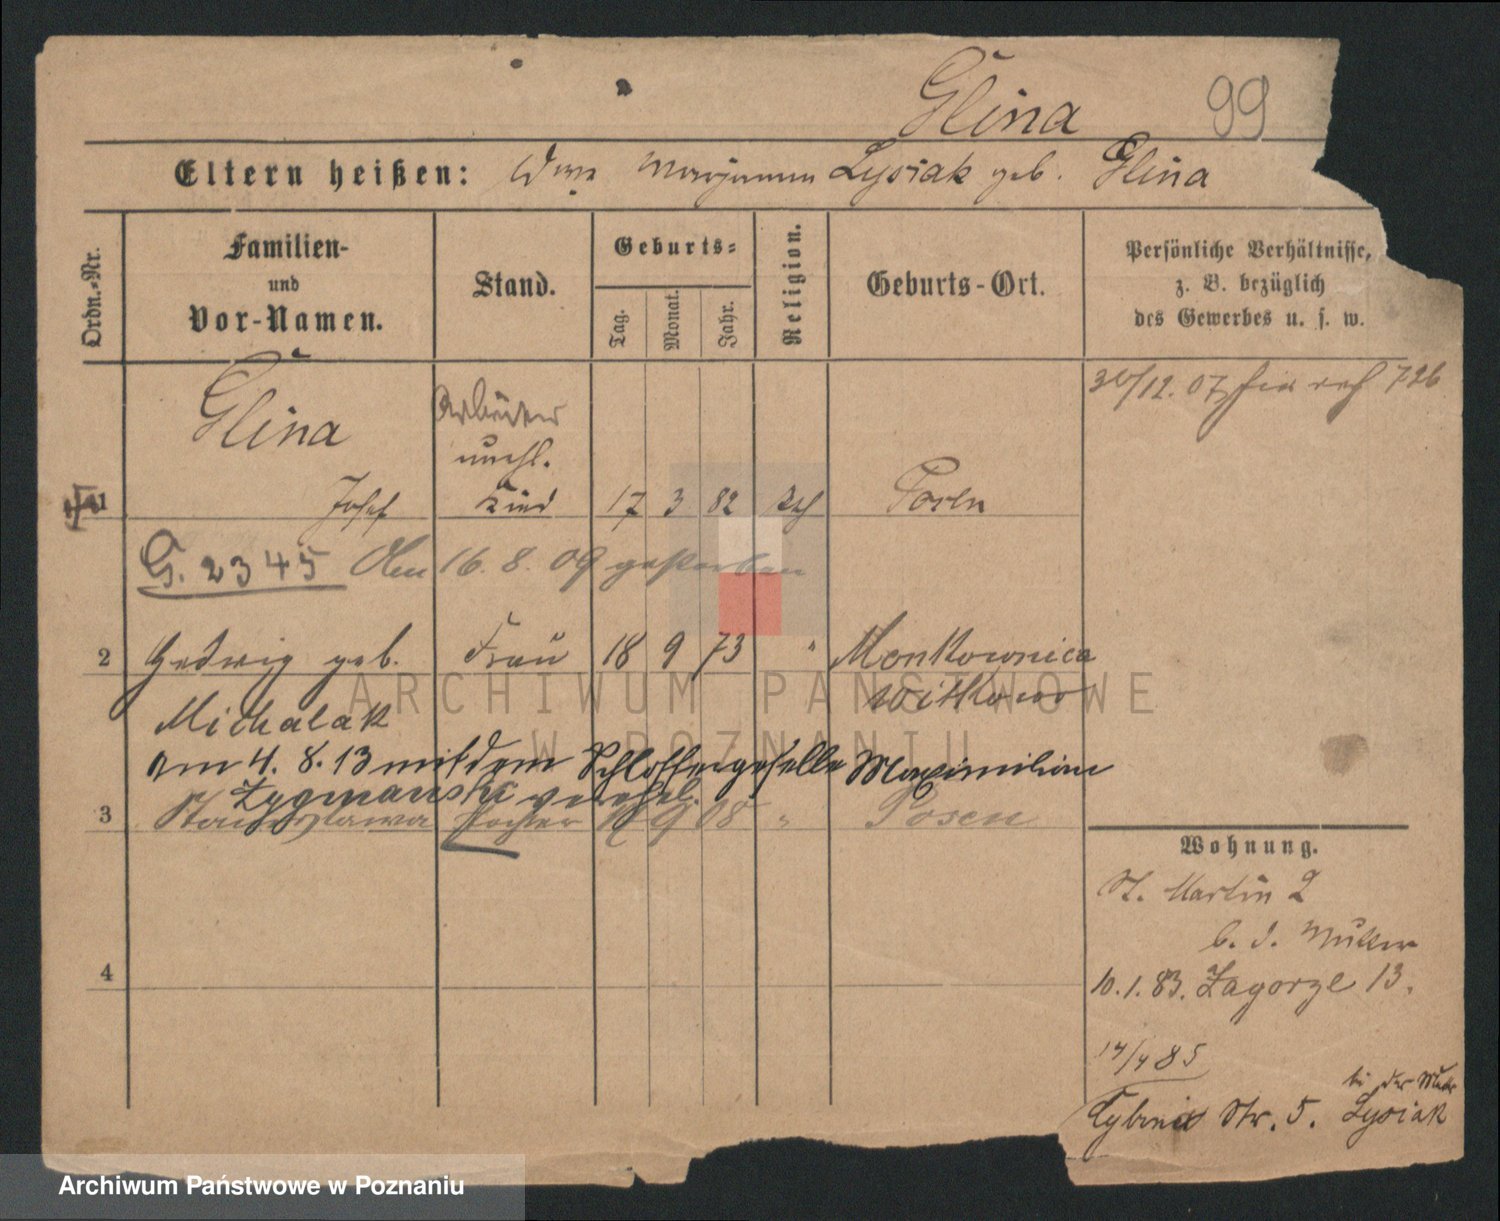 Glina 99
Eltern heißen: Marjanna Lysiak geb. Glina
Ordn.-Nr.
Familien-
und
Vor-Namen.
Stand.
Geburts-
Tag.
Monat.
Jahr.
Religion.
Geburts-Ort.
Persönliche Verhältnisse,
z. B. bezüglich
des Gewerbes u. s. w.
Glina Arbeiter
unehl.
1 Josef Kind 17 3 82 kth Posen
30/12. 07
G. 2345 Am 16. 8. 09 gestorben
2 Hedwig geb. Frau 18 9 73 " Monkownica
Michalak Witkowo
am 4. 8. 13 mit dem Schlossergeselle Maximilian
Zygmanski verehel.
3 Stanislawa Tochter 9 08 " Posen
4
Wohnung.
St. Martin 2
b. d. Mutter
10. 1. 83. Zagorze 13.
14/4 85
bei der Mutter
Cybina Str. 5. Lysiak
ARCHIWUM PAŃSTWOWE
W POZNANIU
Archiwum Państwowe w Poznaniu